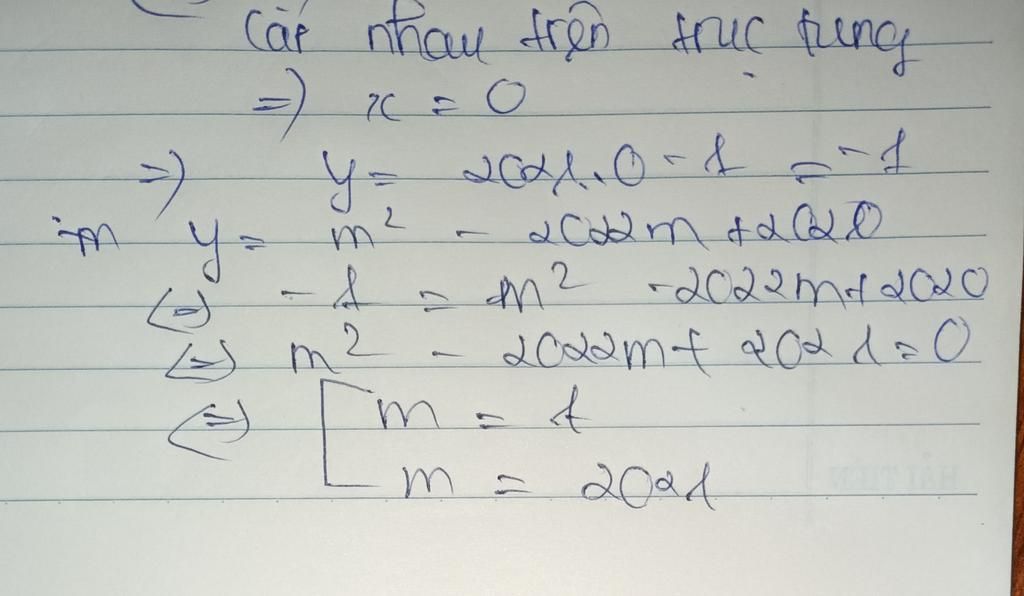 cắt nhau trên trục tung
=> x = 0
=> y = 2021.0 - 1 = -1
y = m² - 2022m + 2020
<=> -1 = m² - 2022m + 2020
<=> m² - 2022m + 2021 = 0
<=> [ m = 1
m = 2021
HẢI TIẾN